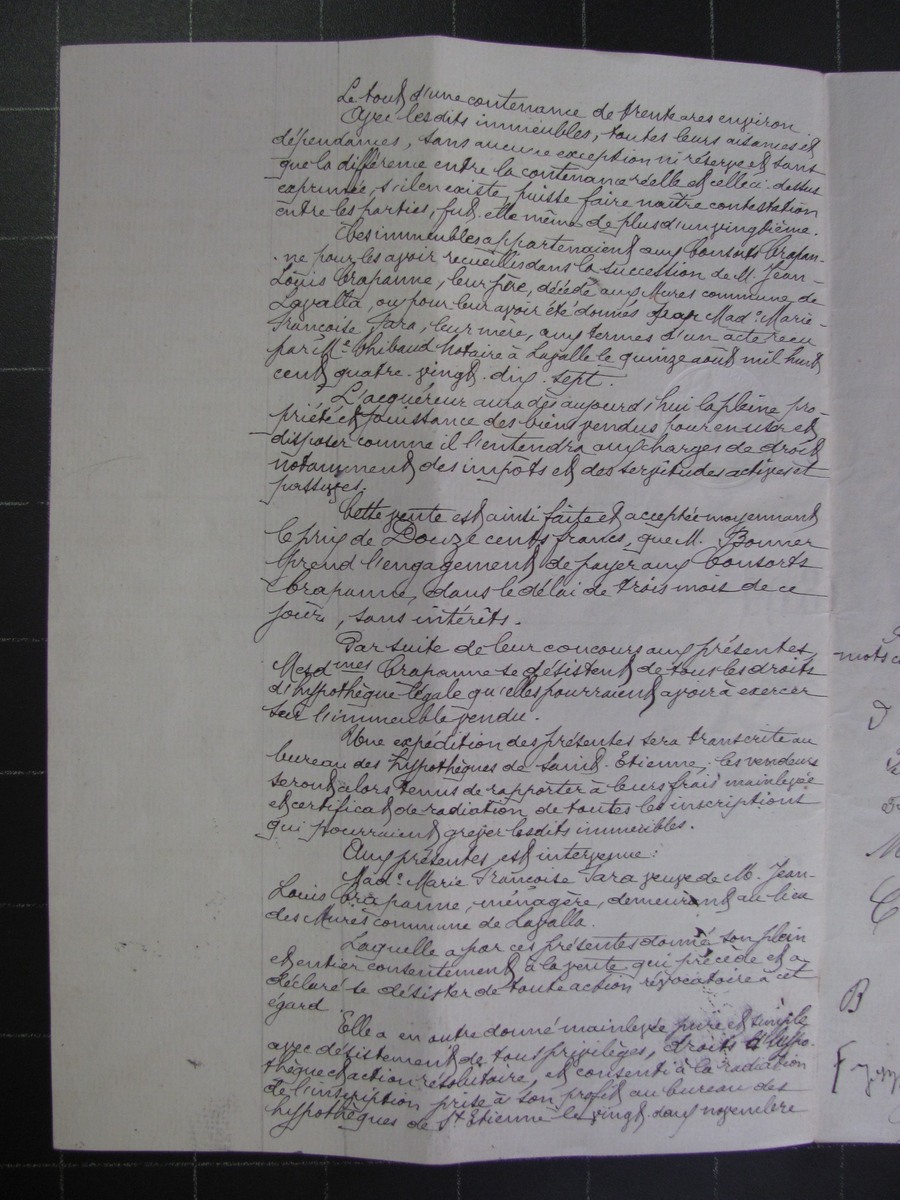 Le tout d'une contenance de trente ares environ.
Avec lesdits immeubles, toutes leurs aisances et
dépendances, sans aucune exception ni réserve et sans
que la différence entre la contenance réelle et celle ci-dessus
exprimée, s'il en existe, puisse faire naître contestation
entre les parties, fut-elle même de plus d'un vingtième.
Ces immeubles appartenaient aux consorts Crapan-
-ne pour les avoir recueillis dans la succession de M. Jean-
Louis Crapanne, leur père, décédé aux Mures commune de
Lavalla, ou pour leur avoir été donnés par Made Marie-
Françoise Jara, leur mère, aux termes d'un acte reçu
par Me Thibaud Notaire à Lavalle le quinze août mil huit
cent quatre-vingt-dix-sept.
L'acquéreur aura dès aujourd'hui la pleine pro-
priété et jouissance des biens vendus pour en user et
disposer comme il l'entendra aux charges de droit
notamment des impôts et des servitudes actives et
passives.
Cette vente est ainsi faite et acceptée moyennant
le prix de Douze cents francs, que M. Bonner
prend l'engagement de payer aux Consorts
Crapanne, dans le délai de trois mois de ce
jour, sans intérêts.
Par suite de leur concours aux présentes,
Mesdmes Crapanne se désistent de tous les droits
d'hypothèque légale qu'elles pourraient avoir à exercer
sur l'immeuble vendu.
Une expédition des présentes sera transcrite au
bureau des hypothèques de Saint-Etienne; les vendeurs
seront alors tenus de rapporter à leurs frais mainlevée
et certificat de radiation de toutes les inscriptions
qui pourraient grever lesdits immeubles.
Aux présentes, est intervenue:
Made Marie Françoise Jara veuve de M. Jean-
Louis Crapanne, ménagère, demeurant au lieu
des Mures commune de Lavalla.
Laquelle a par ces présentes donné son plein
et entier consentement à la vente qui précède et a
déclaré se désister de toute action révocatoire à cet
égard
Elle a en outre donné mainlevée pure et simple
avec désistement de tous privilèges, droits d'hypo-
thèque et action résolutoire, et consenti à la radiation
de l'inscription prise à son profit au bureau des
hypothèques de St Etienne le vingt-deux novembre
mots
B